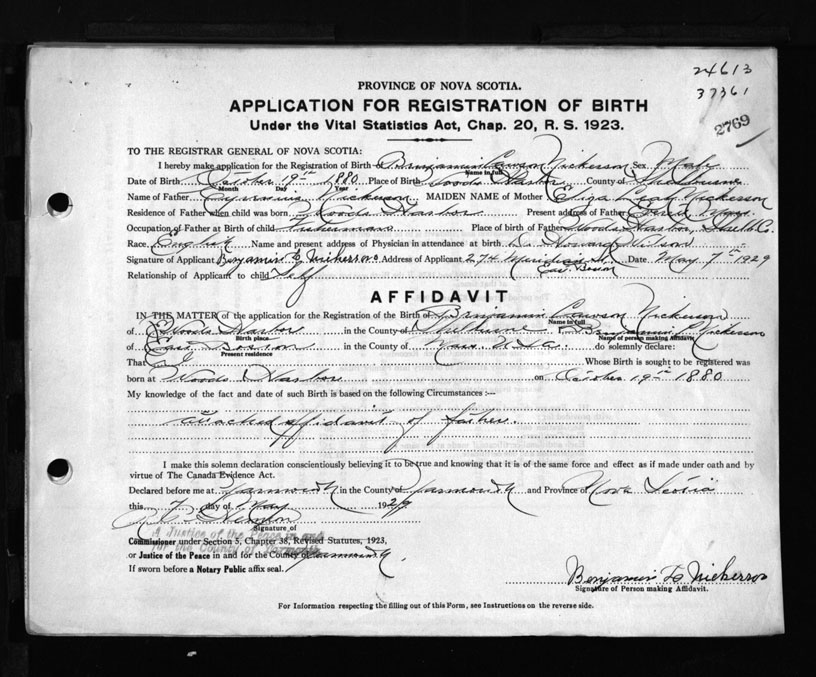 24613
37361
2769
PROVINCE OF NOVA SCOTIA.
APPLICATION FOR REGISTRATION OF BIRTH
Under the Vital Statistics Act, Chap. 20, R. S. 1923.
TO THE REGISTRAR GENERAL OF NOVA SCOTIA:
I hereby make application for the Registration of Birth of Benjamin Nickerson Sex Male
Name in full
Date of Birth October 19th 1880 Place of Birth Woods Harbor County of Shelburne
Month Day Year
Name of Father Nickerson MAIDEN NAME of Mother Eliza Nickerson
Residence of Father when child was born Woods Harbor Present address of Father
Occupation of Father at Birth of child Fisherman Place of birth of Father Woods Harbor,
Race English Name and present address of Physician in attendance at birth Dr Howard Wilson
Signature of Applicant Benjamin Nickerson Address of Applicant 274 Meridian St Date May 7th 1929
East Boston
Relationship of Applicant to child Self
AFFIDAVIT
IN THE MATTER of the application for the Registration of the Birth of Benjamin Nickerson
Name in full
of Woods Harbor in the County of Shelburne Benjamin Nickerson
Birth place Name of person making Affidavit
of East Boston in the County of Mass U.S.A. do solemnly declare:
Present residence
That I Whose Birth is sought to be registered was
born at Woods Harbor on October 19th 1880
My knowledge of the fact and date of such Birth is based on the following Circumstances :—
attached affidavit of father.
I make this solemn declaration conscientiously believing it to be true and knowing that it is of the same force and effect as if made under oath and by
virtue of The Canada Evidence Act.
Declared before me at Yarmouth in the County of Yarmouth and Province of Nova Scotia
this 7 day of May 1929
Signature of
A Justice of the Peace in and
for the County of Yarmouth
Commissioner under Section 5, Chapter 38, Revised Statutes, 1923,
or Justice of the Peace in and for the County of Yarmouth.
If sworn before a Notary Public affix seal.
Benjamin Nickerson
Signature of Person making Affidavit.
For Information respecting the filling out of this Form, see Instructions on the reverse side.